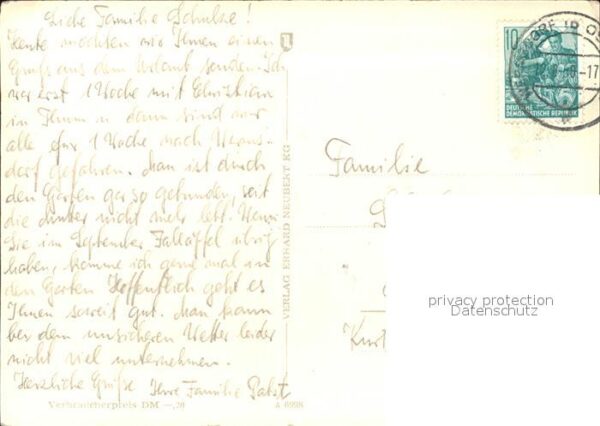 Liebe Familie Schulze!
Heute möchten wir Ihnen einen
Gruß aus dem Urlaub senden. Ich
war erst 1 Woche mit Christian
in Thum u. dann sind wir
alle für 1 Woche nach
dorf gefahren. Man ist durch
den Garten gar so gebunden, seit
die Mutter nicht mehr lebt. Wenn
Sie im September Falläpfel übrig
haben, komme ich gerne mal in
den Garten. Hoffentlich geht es
Ihnen soweit gut. Man kann
bei dem unsicheren Wetter leider
nicht viel unternehmen.
Herzliche Grüße Ihre Familie Pabst
Verbraucherpreis DM —,20
A 6998
VERLAG ERHARD NEUBERT KG
10
DEUTSCHE
DEMOKRATISCHE REPUBLIK
-17
Familie
Kurt
privacy protection
Datenschutz